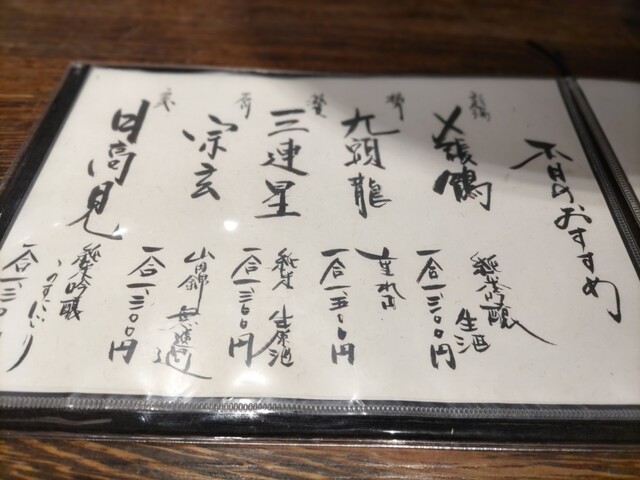 本日のおすすめ
新潟
〆張鶴
純米吟醸
生酒
一合一、三〇〇円
九頭龍
垂れ口
一合一、五〇〇円
三連星
純米
生原酒
一合一、三〇〇円
宗玄
山田錦
無濾過
一合一、三〇〇円
日高見
純米吟醸